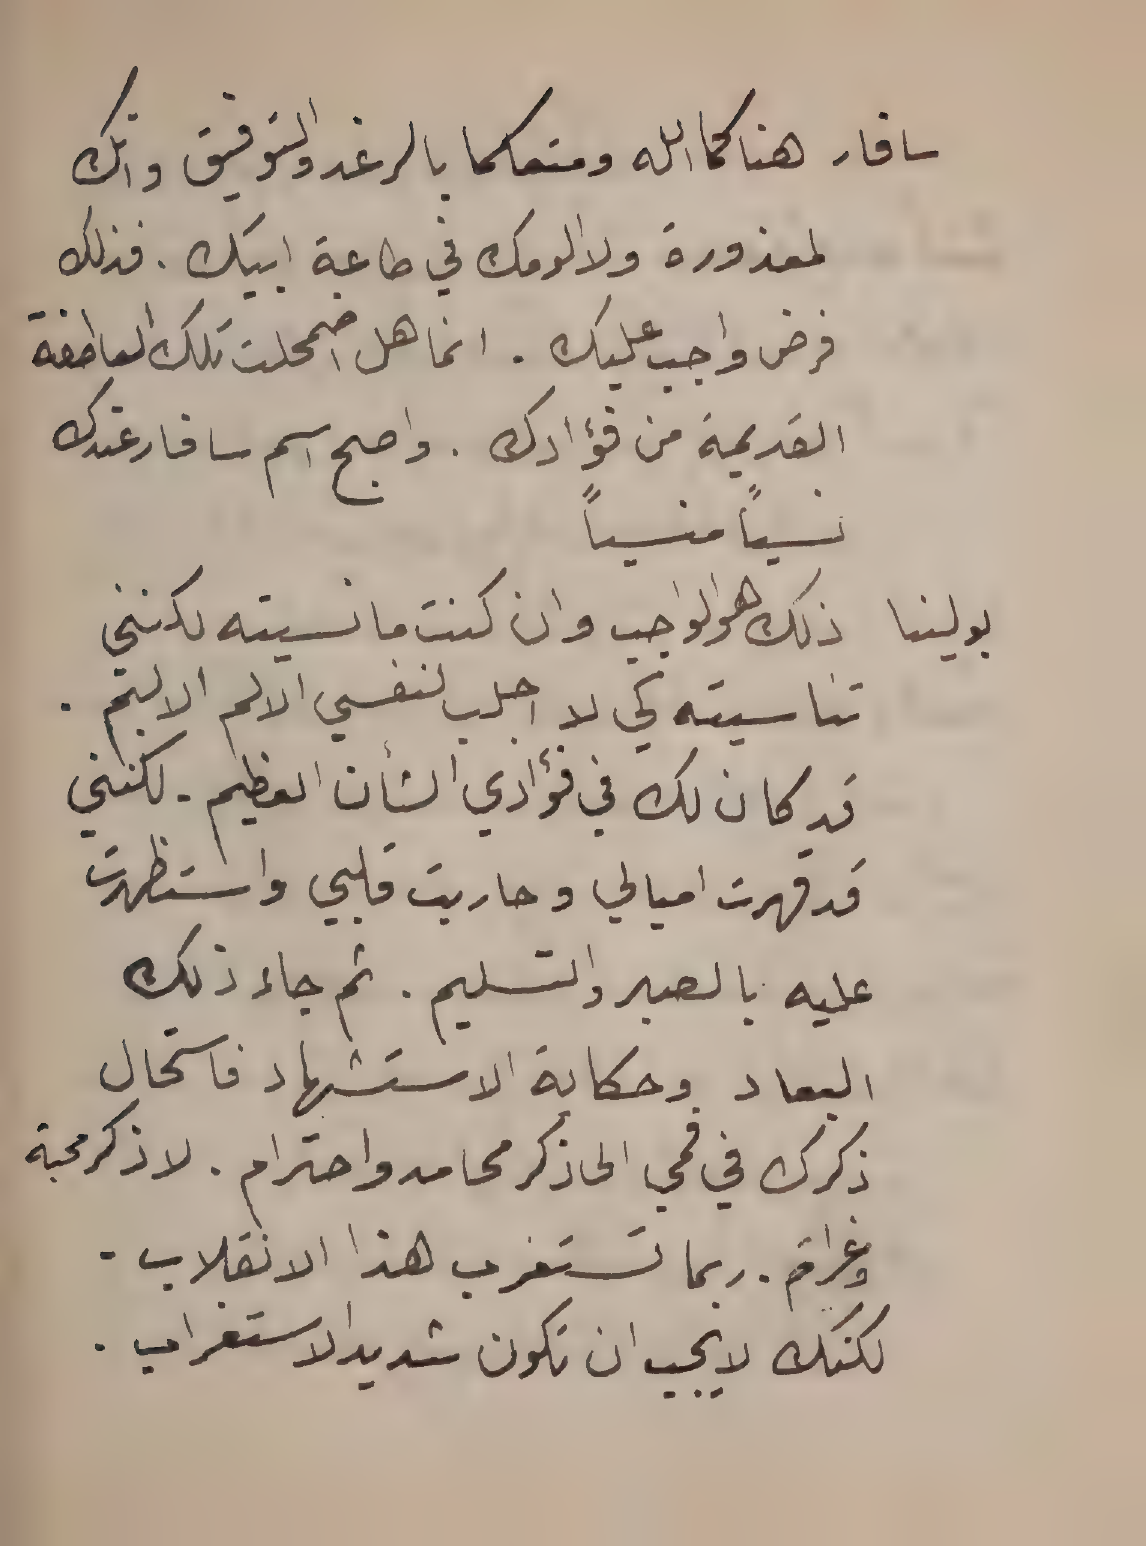 سافار هناكما الله ومتعكما بالرغد والتوفيق وانك
لمعذورة ولا الومك في طاعة ابيك . فذلك
فرض واجب عليك . انما هل اضمحلت تلك العاطفة
القديمة من فؤادك . واصبح اسم سافار عندك
نسياً منسياً
بولينا ذلك هو الواجب وان كنت ما نسيته لكنني
تناسيته كي لا اجلب لنفسي الالم الاليم .
قد كان لك في فؤادي الشأن العظيم - لكنني
قد قهرت اميالي وحاربت قلبي واستظهرت
عليه بالصبر والتسليم . ثم جاء ذلك
البعاد وحكاية الاستشهاد فاستحال
ذكرك في فمي الى ذكر محامد واحترام . لا ذكر محبة
وغرام . ربما تستغرب هذا الانقلاب -
لكنك لا يجب ان تكون شديد الاستغراب .